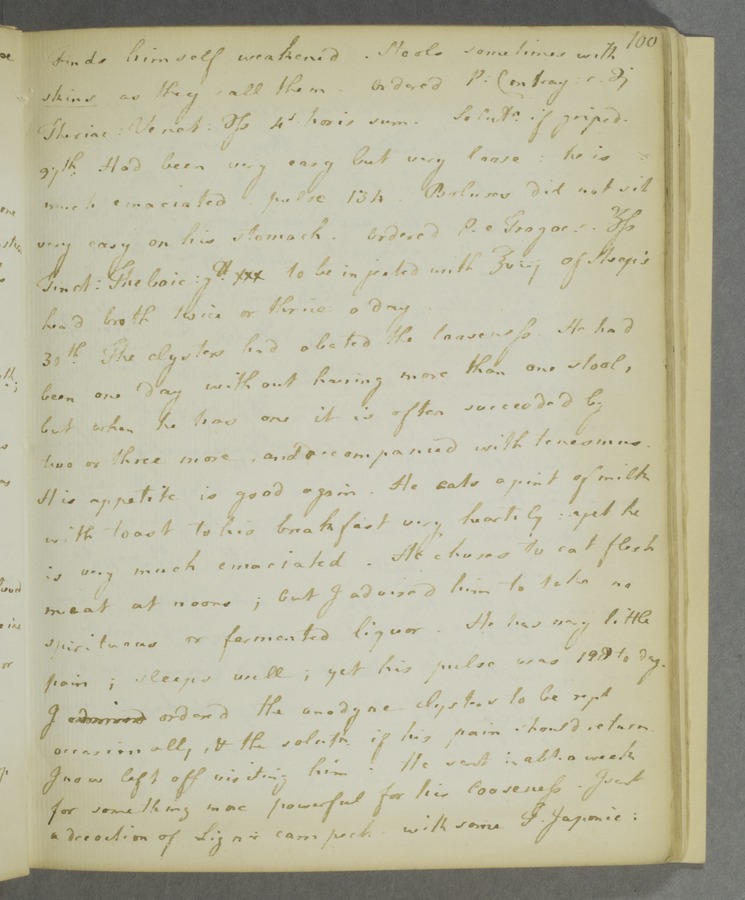 100
finds himself weakened. Stools sometimes with
skins as they call them. Ordered P. Contray: c. ʒj
Theriac: Venet: ʒſs 4s horis sum. Solutn. if griped.
27th. Had been very easy but very loose: he is
much emaciated. pulse 134. Boluses did not sit
very easy on his stomach. Ordered P. e Tragac:. ʒſs
Tinct: Thebaic: gtt xxx to be injected with ℥viij of Sheep's
head broth twice or thrice a day.
30th. The clysters had abated the looseneſs. He had
been one day without having more than one stool,
but when he has one it is often succeeded by
two or three more, and accompanied with tenesmus.
His appetite is good again. He eats a pint of milk
with toast to his breakfast very heartily: yet he
is very much emaciated. He chuses to eat flesh
meat at noons; but I advised him to take no
spirituous or fermented liquor. He has very little
pain; sleeps well; yet his pulse was to day.
I ordered the anodyne clysters to be rept
occasionally, & the solutn. if his pain should return.
I now left off visiting him. He sent in abt. a week
for something more powerful for his looseneſs. I sent
a decoction of Ligni campech. with some T. Japonic: